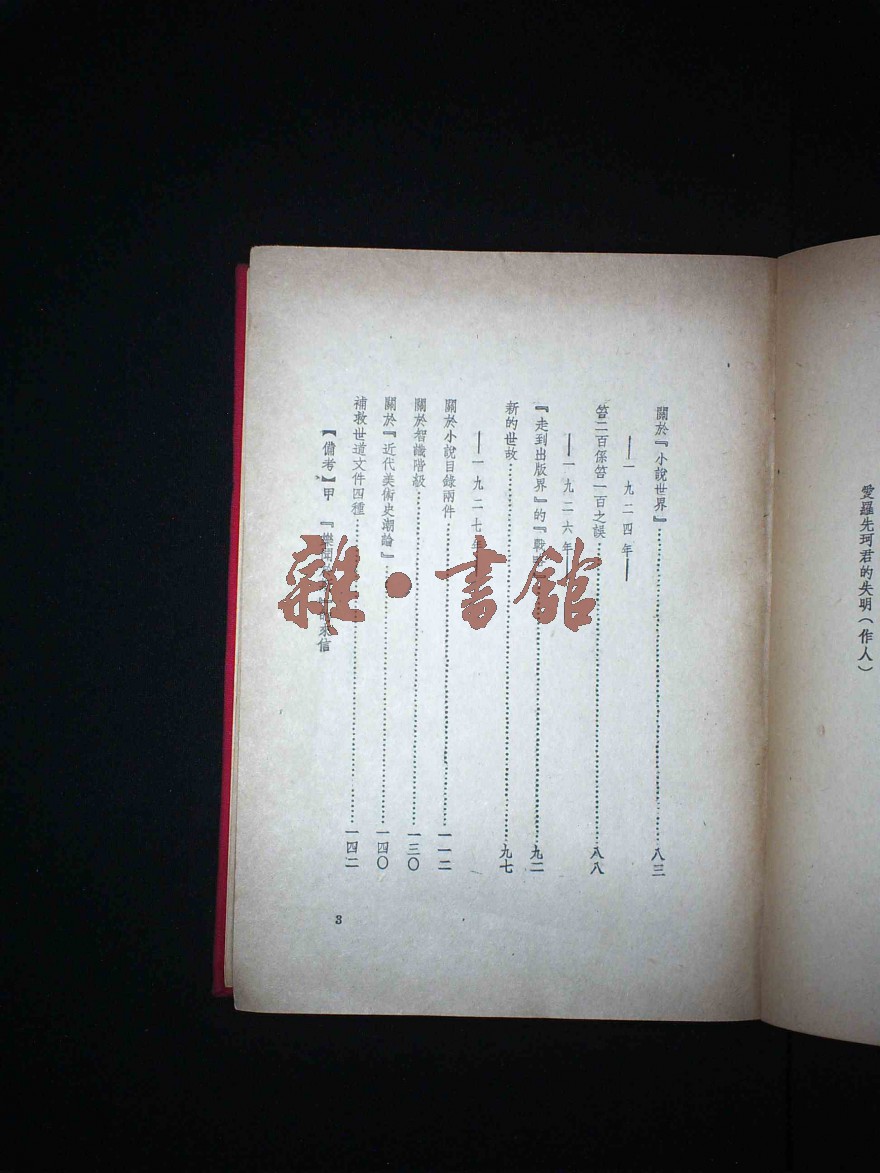 愛羅先珂君的失明（作人）
關於『小說世界』……八三
——一九二四年——
答二百係答一百之誤……八八
——一九二六年——
『走到出版界』的『戰略……九二
新的世故……九七
——一九二七年——
關於小說目錄兩件……一一二
關於智識階級……一三〇
關於『近代美術史潮論』……一四〇
補救世道文件四種……一四二
【備考】甲 『樂聞 來信
3
雜·書館